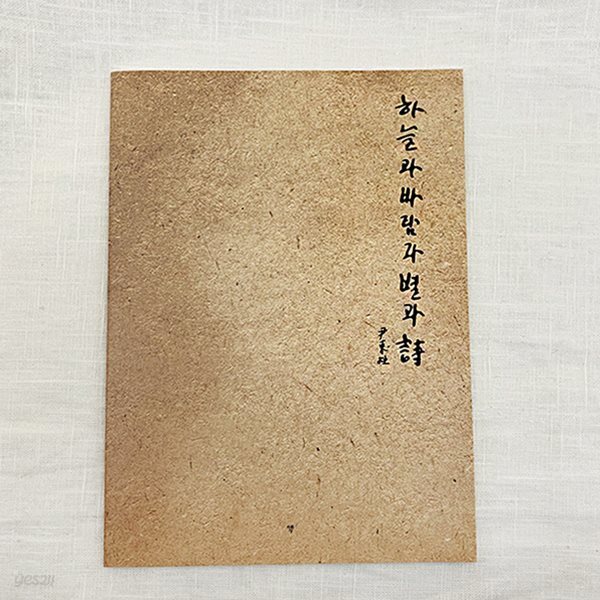 하늘과바람과별과詩
尹東柱
yes24